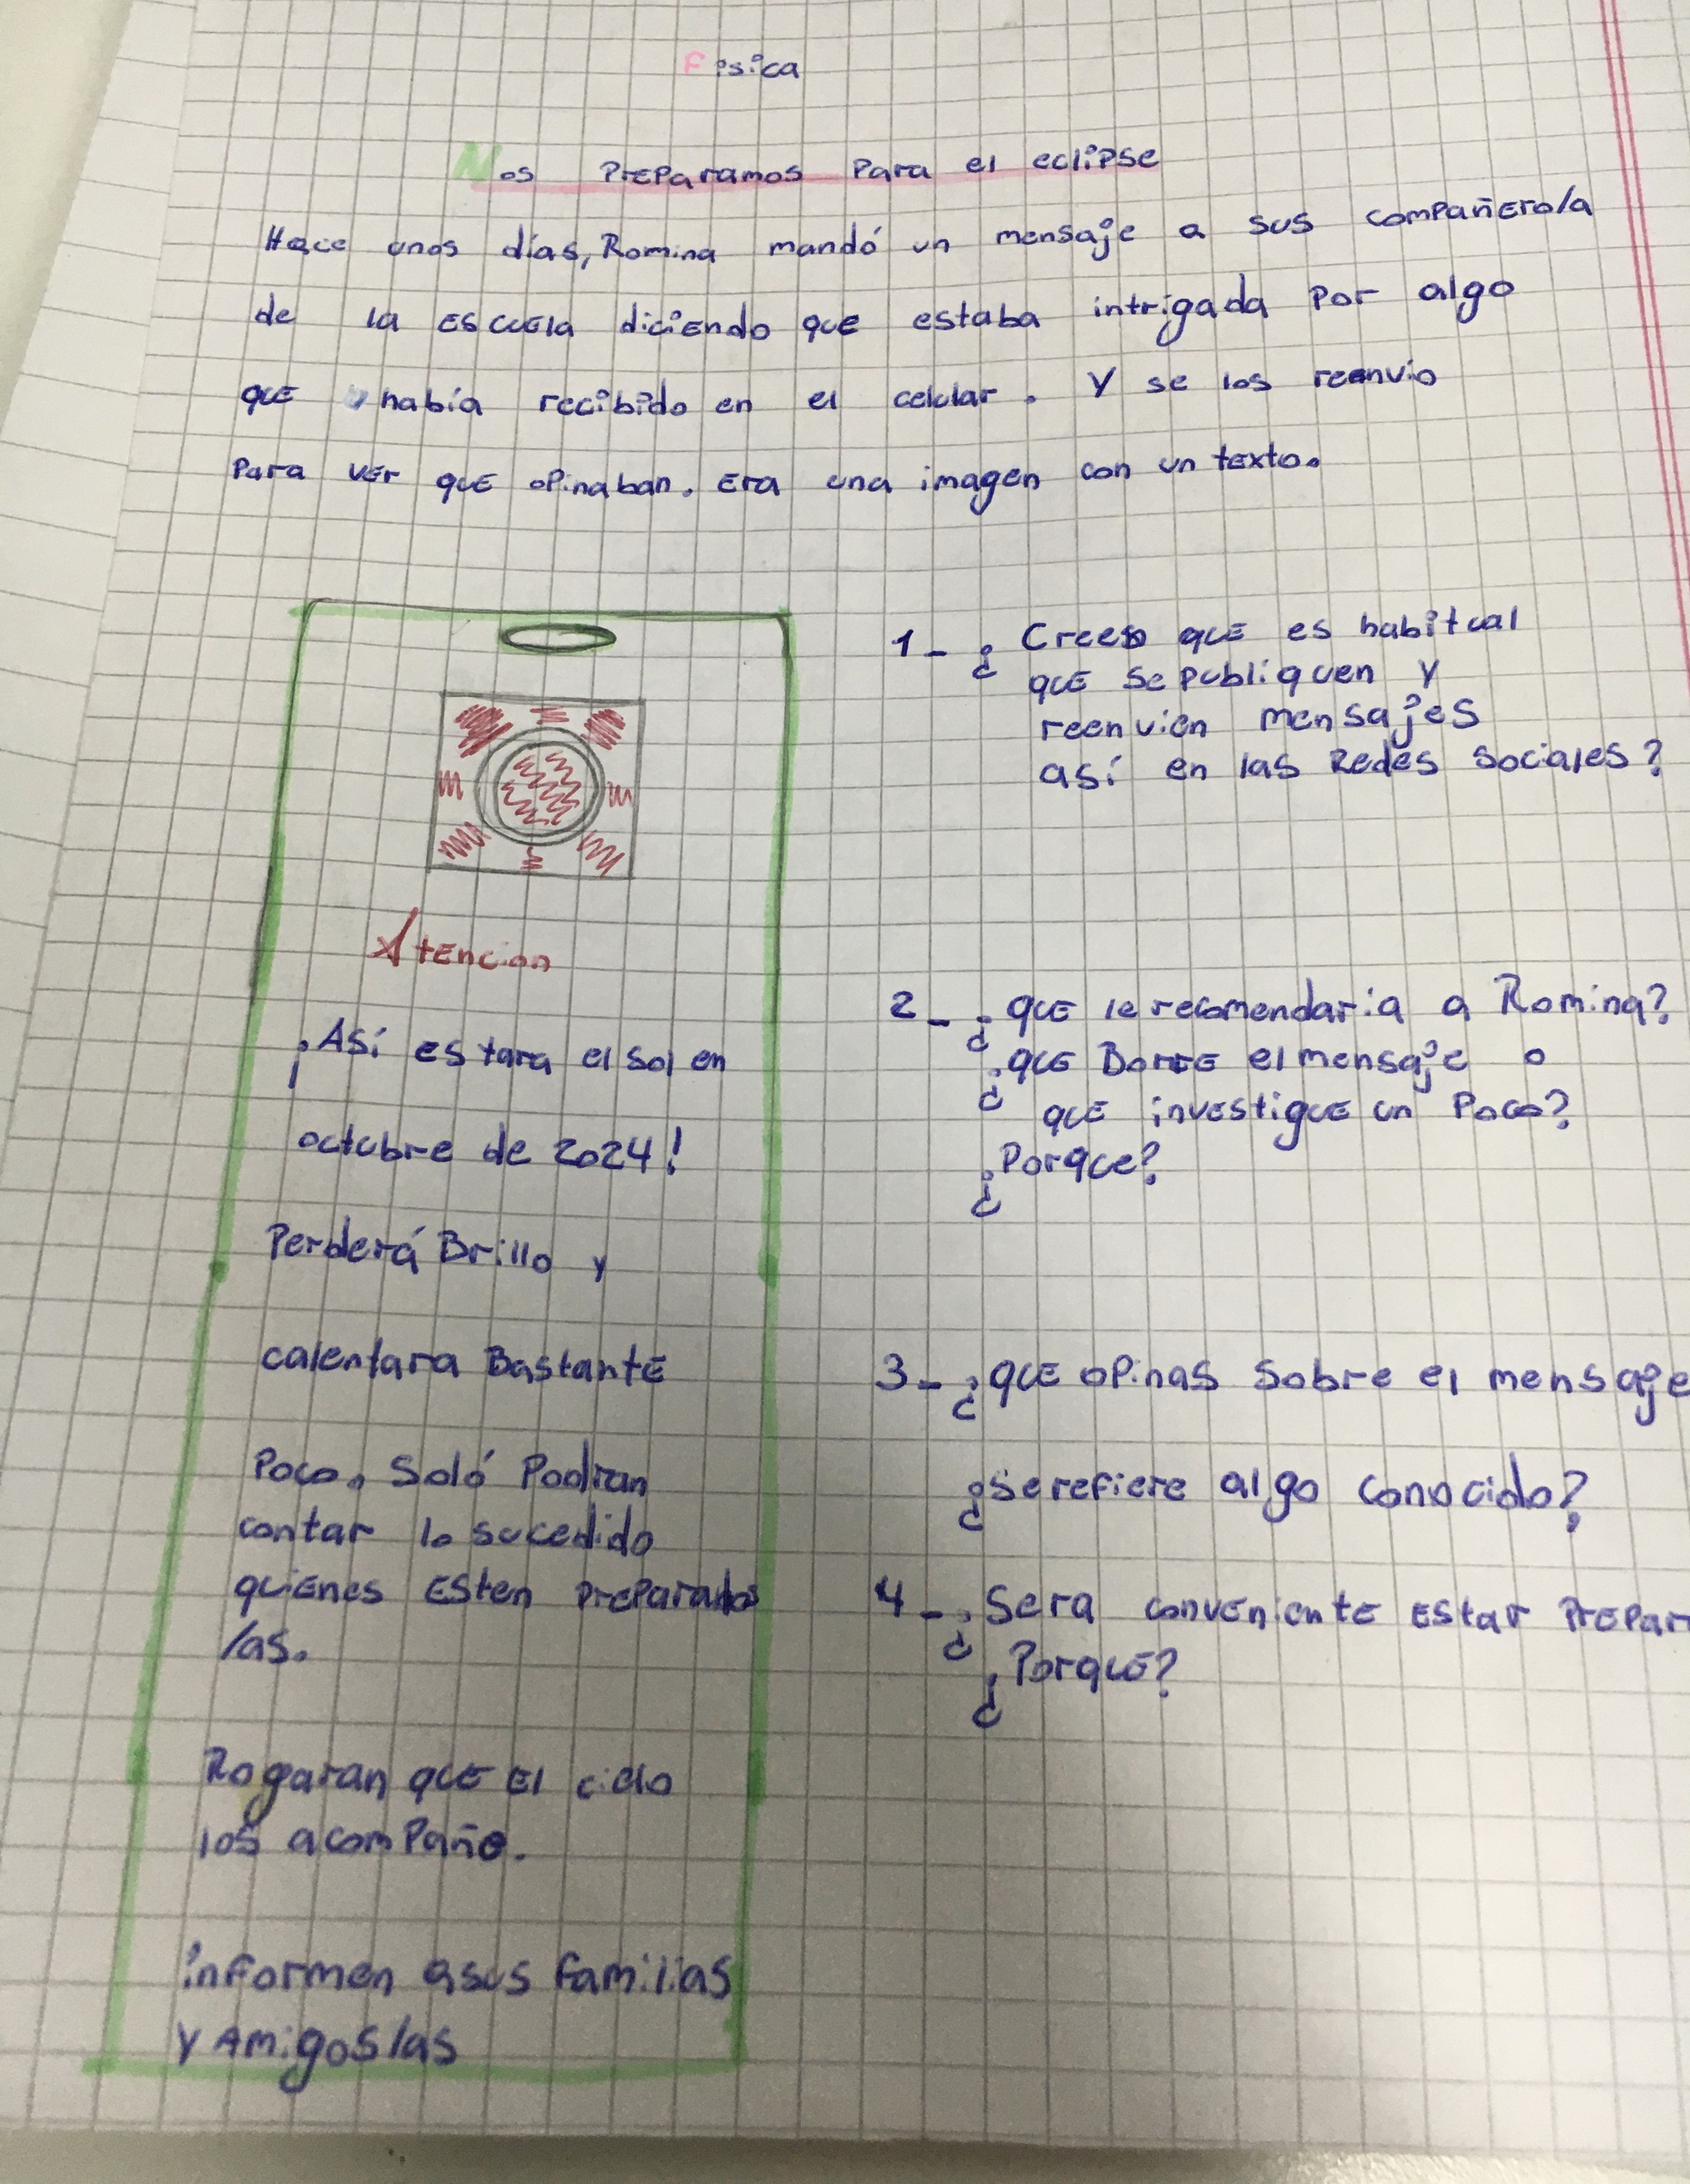 Fisica
Nos Preparamos Para el eclipse
Hace unos días, Romina mandó un mensaje a sus compañero/a
de la escuela diciendo que estaba intrigada por algo
que había recibido en el celular. Y se los reenvio
Para ver que opinaban. Era una imagen con un texto.
Atencion
¡Así estara el sol en
octubre de 2024!
Perderá Brillo y
calentara Bastante
Poco. Soló Podran
contar lo sucedido
quienes Esten preparados
/as.
Rogaran que El cielo
los acompañe.
informen a sus familias
y Amigos/as
1- ¿ Crees que es habitual
que se publiquen y
reenvien mensajes
así en las Redes sociales?
2- ¿que le recomendaria a Romina?
¿que Borre el mensaje o
que investigue un Poco?
¿Porque?
3- ¿que opinas sobre el mensaje
¿se refiere algo conocido?
4- ¿Sera conveniente Estar Prepar
¿Porque?